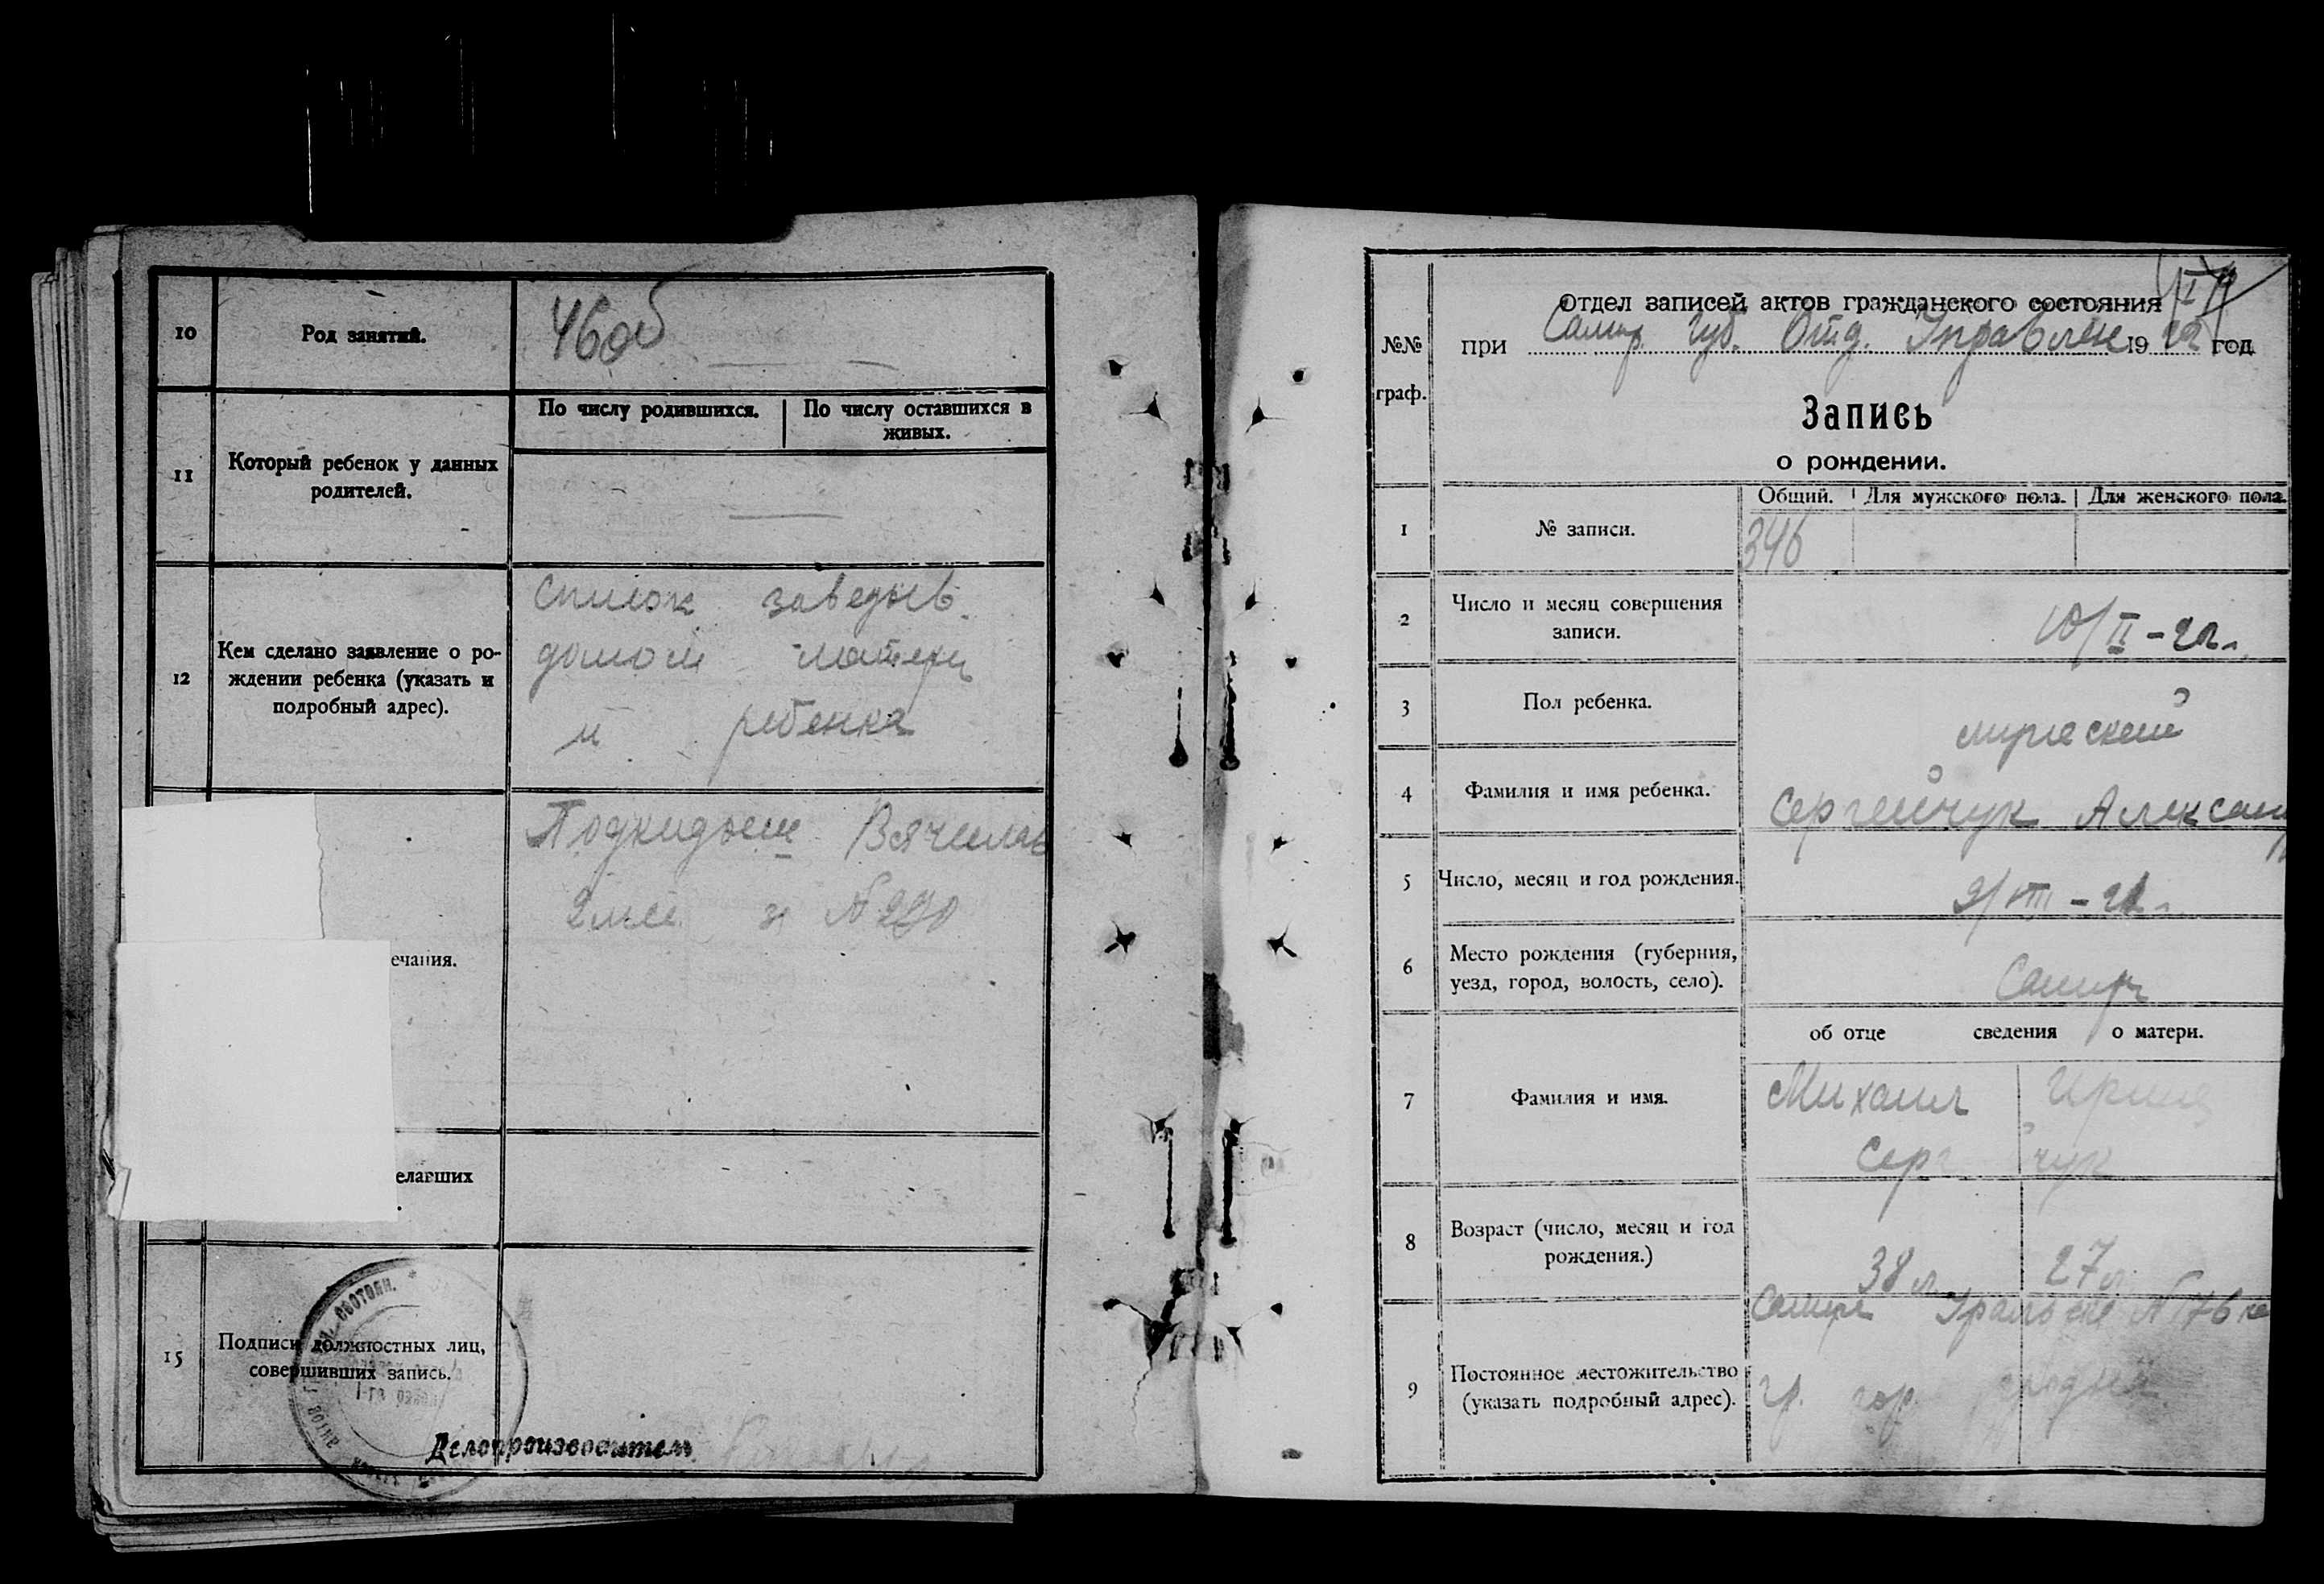 10
Род занятий.
46об
11
Который ребенок у данных
родителей.
По числу родившихся.
По числу оставшихся в
живых.
12
Кем сделано заявление о ро-
ждении ребенка (указать и
подробный адрес).
Список заведыв.
домом матери
и ребенка
ечания.
Подкидыш Вячеслав
2 мес. № 290
елавших
15
Подписи должностных лиц,
совершивших запись.
Делопроизводитель
№№
граф.
Отдел записей актов гражданского состояния
при Самар. Губ. Отд. Управлен 1922 год
Запись
о рождении.
1
№ записи.
Общий.
Для мужского пола.
Для женского пола.
346
2
Число и месяц совершения
записи.
10/II-22.
3
Пол ребенка.
мужской
4
Фамилия и имя ребенка.
Сергейчук Александр
5
Число, месяц и год рождения.
9/VIII-21.
6
Место рождения (губерния,
уезд, город, волость, село).
Самара
об отце сведения о матери.
7
Фамилия и имя.
Михаил
Ирина
Серг йчук
8
Возраст (число, месяц и год
рождения.)
38 л.
27 л.
9
Постоянное местожительство
(указать подробный адрес).
Самара Уральская № 176
гр. гор.